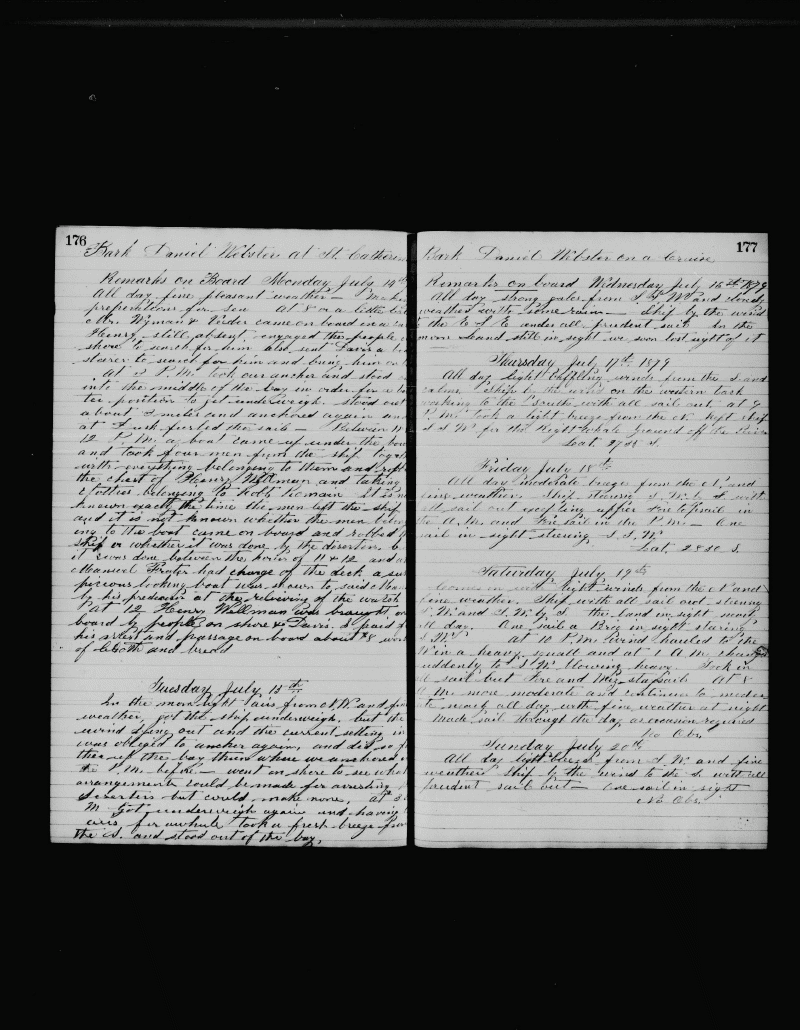 176
Bark Daniel Webster at St Catherin
Remarks on Board Monday July 14th
All day fine pleasant weather —
preparations for sea At 8 or a little
Mr. Wyman & Verder came on board in a
Henry still absent engaged the people
shore to search for him also sent Davis a
steerer to search for him and bring him
At 2 P.M. took our anchor and stood
into the middle of the bay in order for a
ter position to get underweigh. stood out
about 2 miles and anchored again and
at dusk furled the sails — Between 11
12 P.M. a boat came up under the bow
and took four men from the ship
with everything belonging to them and
the chest of Henry Wellman and taking
clothes belonging to It is
known exactly the time the men left the ship
and it is not known whether the men
ing to the boat came on board and robbed
ship or whether it was done by the deserters, b
it was done between the hours of 11 & 12 and
Manuel Frater had charge of the deck a sus
picious looking boat was shown to said
by his predecessor at the relieving of the watch
At 12 Henry Wellman was brought on
board by people on shore & Davis. I paid
his arrest and passage on board about $8
of Cloth and bread
Tuesday July 15th
In the morn light airs from N.W. and
weather, got the ship underweigh, but the
wind dying out and the current setting in
was obliged to anchor again, and did so
ther up the bay than where we anchored
the P.M. before — went on shore to see what
arrangements could be made for arresting
deserters but could make none, at 3
M. Got underweigh again and having
airs for awhile took a fresh breeze from
the S. and stood out of the bay.
177
Bark Daniel Webster on a Cruise
Remarks on board Wednesday July 16th 1879
All day strong gales from S.W. and cloudy
weather with some rain — Ship by the wind
to the E of S under all prudent sail In the
morn land still in sight we soon lost sight of it
Thursday July 17th 1879
All day light baffling winds from the S and
calms. Ship by the wind on the western tack
working to the South with all sail out at 7
P.M. took a light breeze from the N. Kept ship
S S W for the Right Whale ground off the River
Lat. 27 28 S.
Friday July 18th
All day moderate breeze from the N. and
fine weather. Ship steering S. W. by S. with
all sail out excepting upper Fore topsail in
the A.M. and Fore sail in the P.M. — One
sail in sight steering S. S. W.
Lat. 28 50 S.
Saturday July 19th
Comes in with light winds from the N and
fine weather. Ship with all sail out steering
S.W. and S.W. by S. the land in sight most
all day. One sail a Brig in sight steering
S.W. At 10 P.M. wind hauled to the
W in a heavy squall and at 1 A.M. changed
suddenly to S.W. blowing heavy. Took in
all sail but Fore and Miz. staysails At 8
A.M. more moderate and continues to moder
ate nearly all day with fine weather at night
Made sail through the day as occasion required
No Obs.
Sunday July 20th
All day light breezes from S.W. and fine
weather Ship by the wind to the S. with all
prudent sail out — one sail in sight
No Obs.